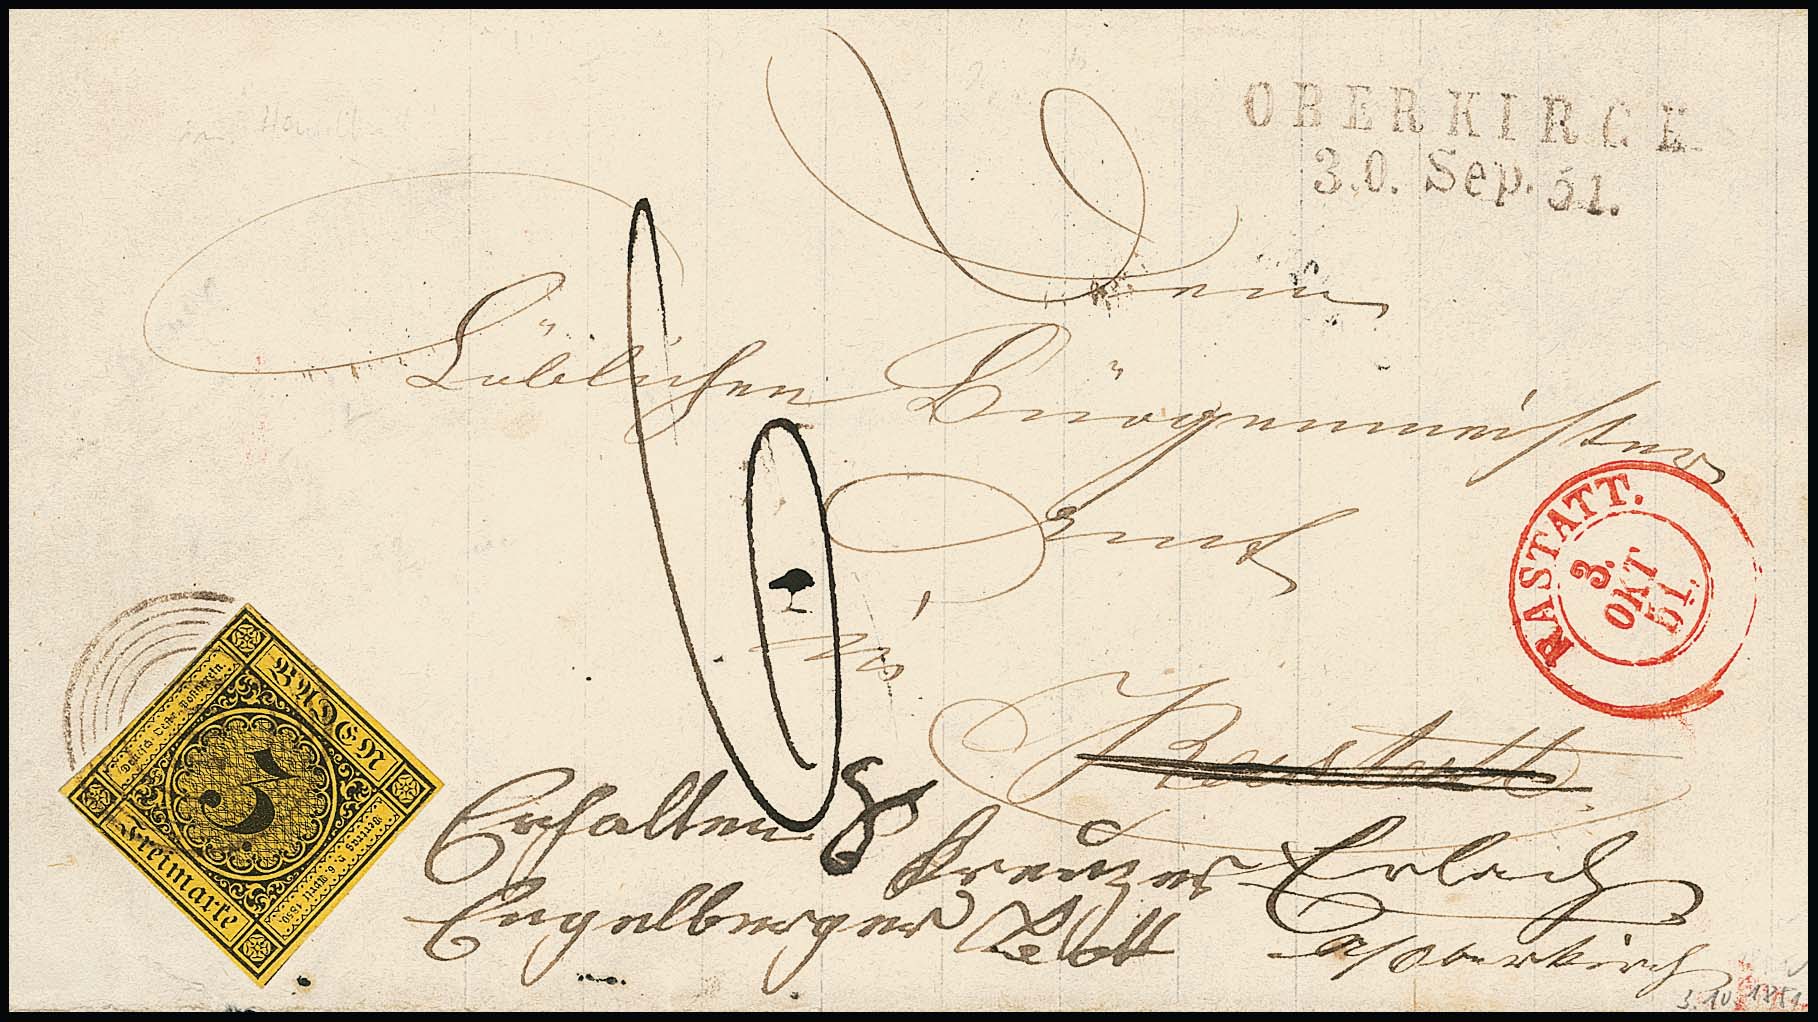 OBERKIRCH
30. Sep. 51.
Dem
Löblichen Bürgermeister
Amt
in
Rastatt
RASTATT.
3.
OKT
51.
BADEN
Deutsch. Oestr. Postverein.
3.
Vertrag v. 6. April 1850.
Freimarke
Erhalten 8 Kreuzer Erlach
Engelberger Bott a/Oberkirch
3.10.1851